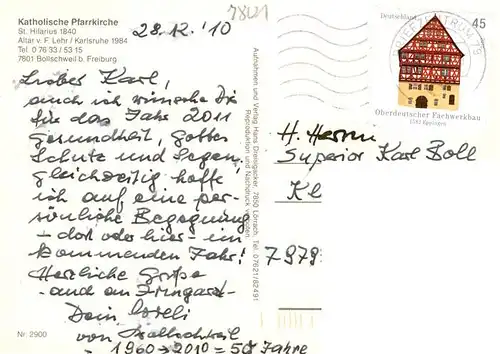 Katholische Pfarrkirche
St. Hilarius 1840
Altar v. F. Lehr / Karlsruhe 1984
Tel 0 76 33 / 53 15
7801 Bollschweil b. Freiburg
28.12.'10
7801
Lieber Karl,
auch ich wünsche Dir
für das Jahr 2011
Gesundheit, Gottes
Schutz und Segen.
Gleichzeitig hoffe
ich auf eine per-
sönliche Begegnung
- dort oder hier - im
kommenden Jahr!
Herzliche Grüße
- auch an Irmgard -
Dein
von Bollschweil
- 1960 → 2010 = 50 Jahre
Nr. 2900
Aufnahmen und Verlag Hans Dreisigacker, 7850 Lörrach, Tel. 07621/82491
Reproduktion und Nachdruck verboten.
Deutschland
45
BRIEFZENTRUM 79
Oberdeutscher Fachwerkbau
H. Herrn
Superior Karl Boll
Kl
7979